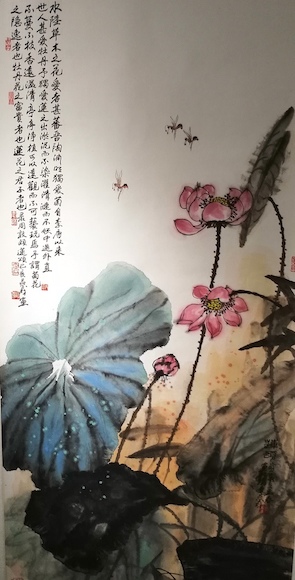 水陸草木之花愛者甚蕃吾陶渊明獨愛菊自李唐以来
世人甚愛牡丹予獨愛蓮之出淤泥而不染濯清漣而不妖中通外直
不蔓不枝香遠溢清亭亭淨植可以遠觀而不可褻玩焉予謂菊花
之隱逸者也牡丹花之富貴者也蓮花之君子者也周敦頤蓮頌